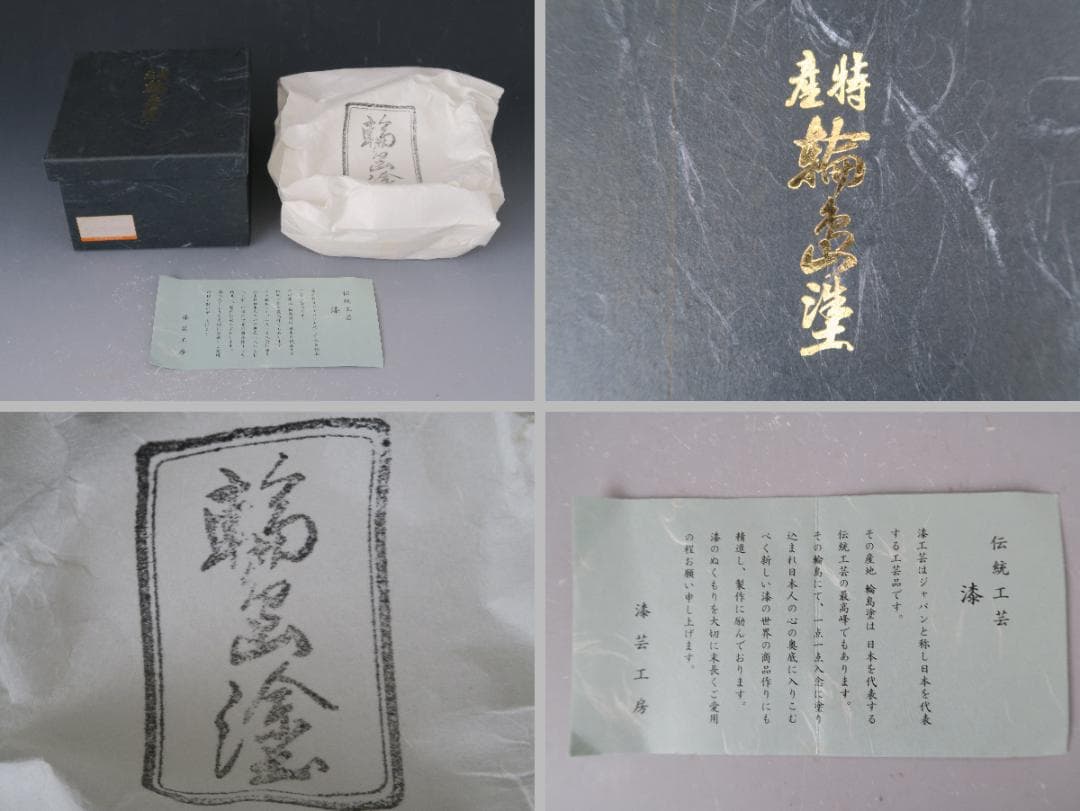 輪島塗
伝統工芸
漆
漆芸工房
特産
輪島塗
輪島塗
伝統工芸
漆
漆工芸はジャパンと称し日本を代表
する工芸品です。
その産地 輪島塗は 日本を代表する
伝統工芸の最高峰でもあります。
その輪島にて、一点一点入念に塗り
込まれ日本人の心の奥底に入りこむ
べく新しい漆の世界の商品作りにも
精進し、製作に励んでおります。
漆のぬくもりを大切に末長くご愛用
の程お願い申し上げます。
漆芸工房